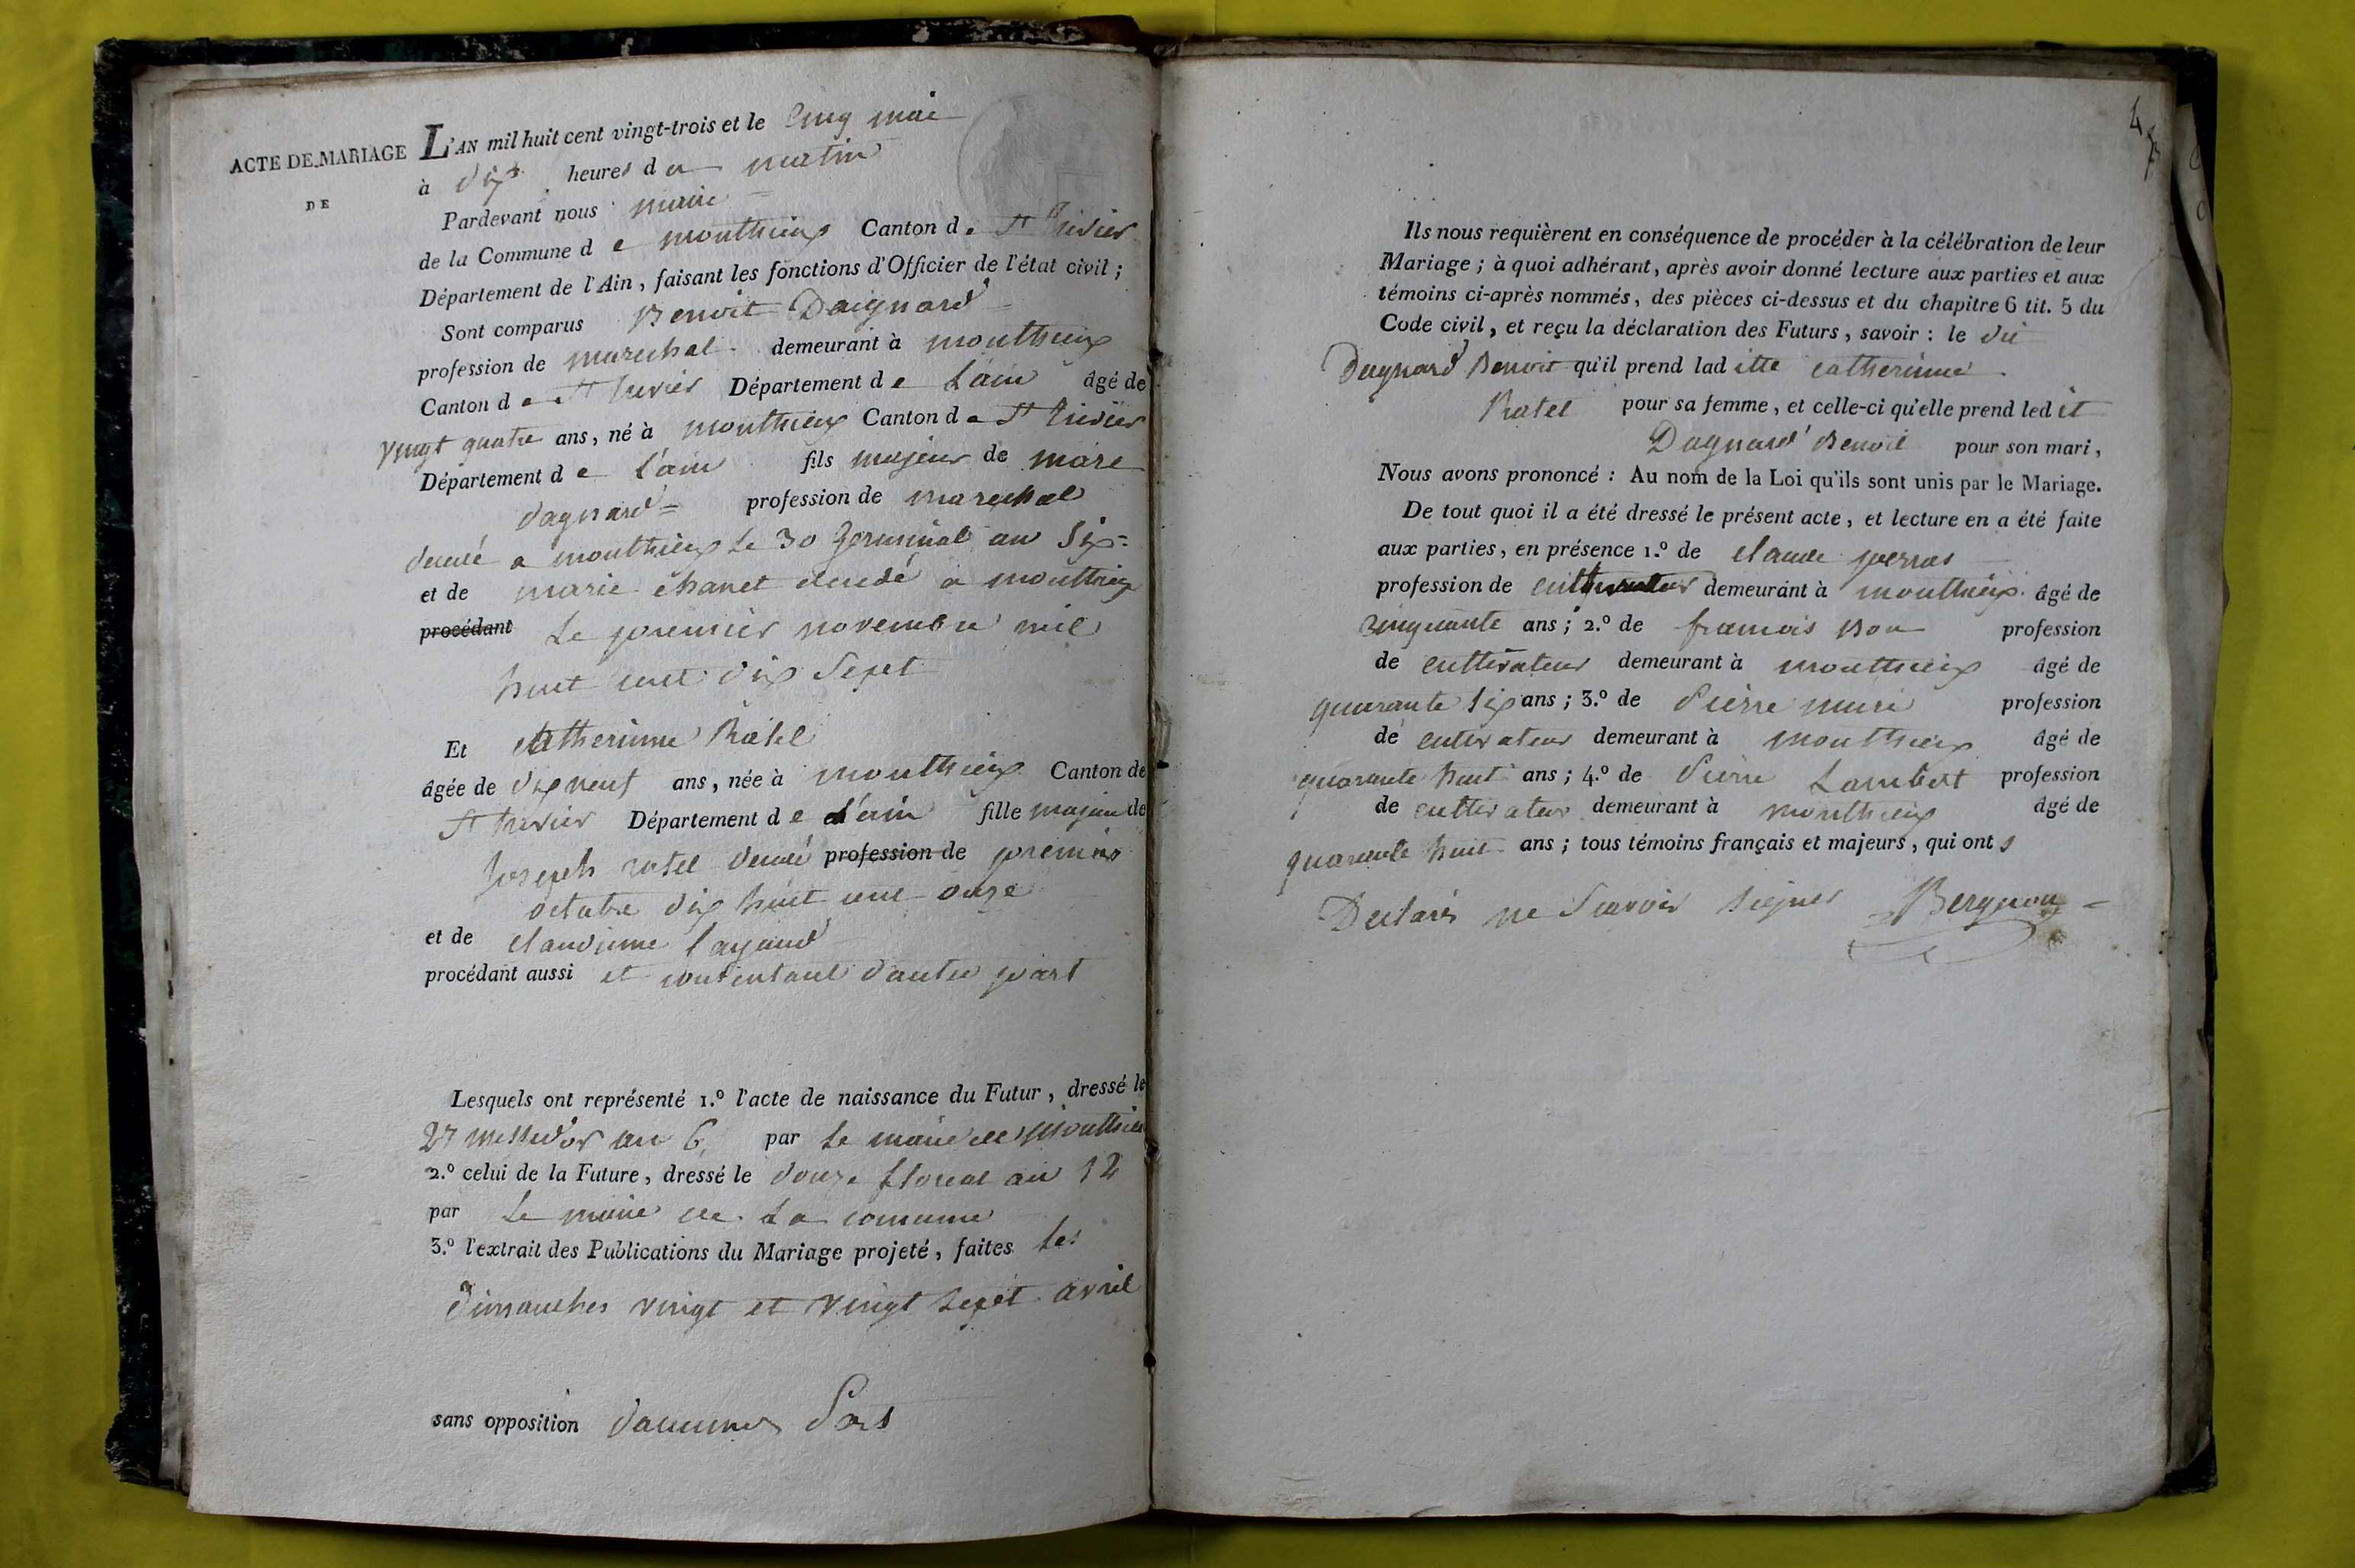 ACTE DE MARIAGE
DE
L'AN mil huit cent vingt-trois et le Cinq mai
à dix heures du matin
Pardevant nous maire
de la Commune de monthieux Canton de St trivier
Département de l'Ain, faisant les fonctions d'Officier de l'état civil;
Sont comparus Benoit Daignard
profession de marechal demeurant à monthieux
Canton de St trivier Département de Lain âgé de
vingt quatre ans, né à monthieux Canton de St trivier
Département de Lain fils majeur de marc
dagnard = profession de marechal
decedé a monthieux Le 30 Germinal an Six =
et de marie chanet decedé a monthieux
procédant Le premier novembre mil
huit cent dix Sept
Et Catherinne Ratel
âgée de dix neuf ans, née à monthieux Canton de
St trivier Département de L'ain fille majeure de
Joseph ratel decedé profession de premier
octobre dix huit cent onze
et de claudinne
procédant aussi et d'autre part
Lesquels ont représenté 1.º l'acte de naissance du Futur, dressé le
27 messidor an 6, par Le maire de monthieux
2.º celui de la Future, dressé le douze floreal an 12
par Le maire de La comunne
3.º l'extrait des Publications du Mariage projeté, faites Les
dimanches vingt et vingt Sept avril
sans opposition
4
Ils nous requièrent en conséquence de procéder à la célébration de leur
Mariage; à quoi adhérant, après avoir donné lecture aux parties et aux
témoins ci-après nommés, des pièces ci-dessus et du chapitre 6 tit. 5 du
Code civil, et reçu la déclaration des Futurs, savoir: le dit
Dagnard Benoit qu'il prend laditte catherinne
Ratel pour sa femme, et celle-ci qu'elle prend ledit
Dagnard Benoit pour son mari,
Nous avons prononcé: Au nom de la Loi qu'ils sont unis par le Mariage.
De tout quoi il a été dressé le présent acte, et lecture en a été faite
aux parties, en présence 1.º de claude perras
profession de cultivateur demeurant à monthieux âgé de
cinquante ans; 2.º de francois profession
de cultivateur demeurant à monthieux âgé de
quarante Six ans; 3.º de Pierre profession
de cultivateur demeurant à monthieux âgé de
quarante huit ans; 4.º de Pierre Lambert profession
de cultivateur demeurant à monthieux âgé de
quarante huit ans; tous témoins français et majeurs, qui ont
Declarés ne Scavoir signer